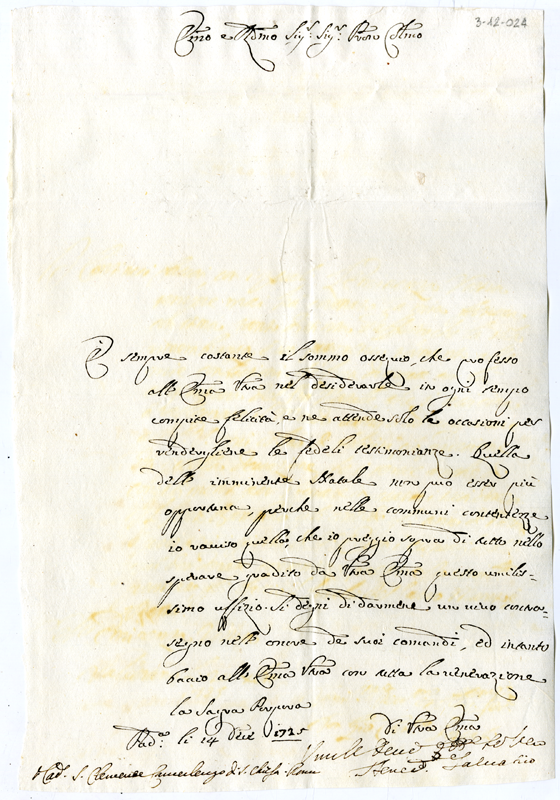 3-12-024
Emo e Rdmo Sigr. Sigr. Pron Colmo
È sempre costante il sommo ossequio, che professo
all' Ema Vra nel desiderarle in ogni tempo
compite felicità, e ne attende solo le occasioni per
rendergliene le fedeli testimonianze. Quella
dell' imminente Natale non può esser più
opportuna, perche nelle communi contentezze
io raviso quella, che io preggio sopra di tutto nello
sperare gradito da Vra Ema questo umilis-
simo uffizio. Si degni di darmene un vivo contra-
segno nell' onore de suoi comandi, ed intanto
bacio all' Ema Vra con tutta la venerazione
la Sagra Porpora
li 14 Dcre 1725
Di Vra Ema
S. Clemente Camerlengo di S. Chiesa Roma